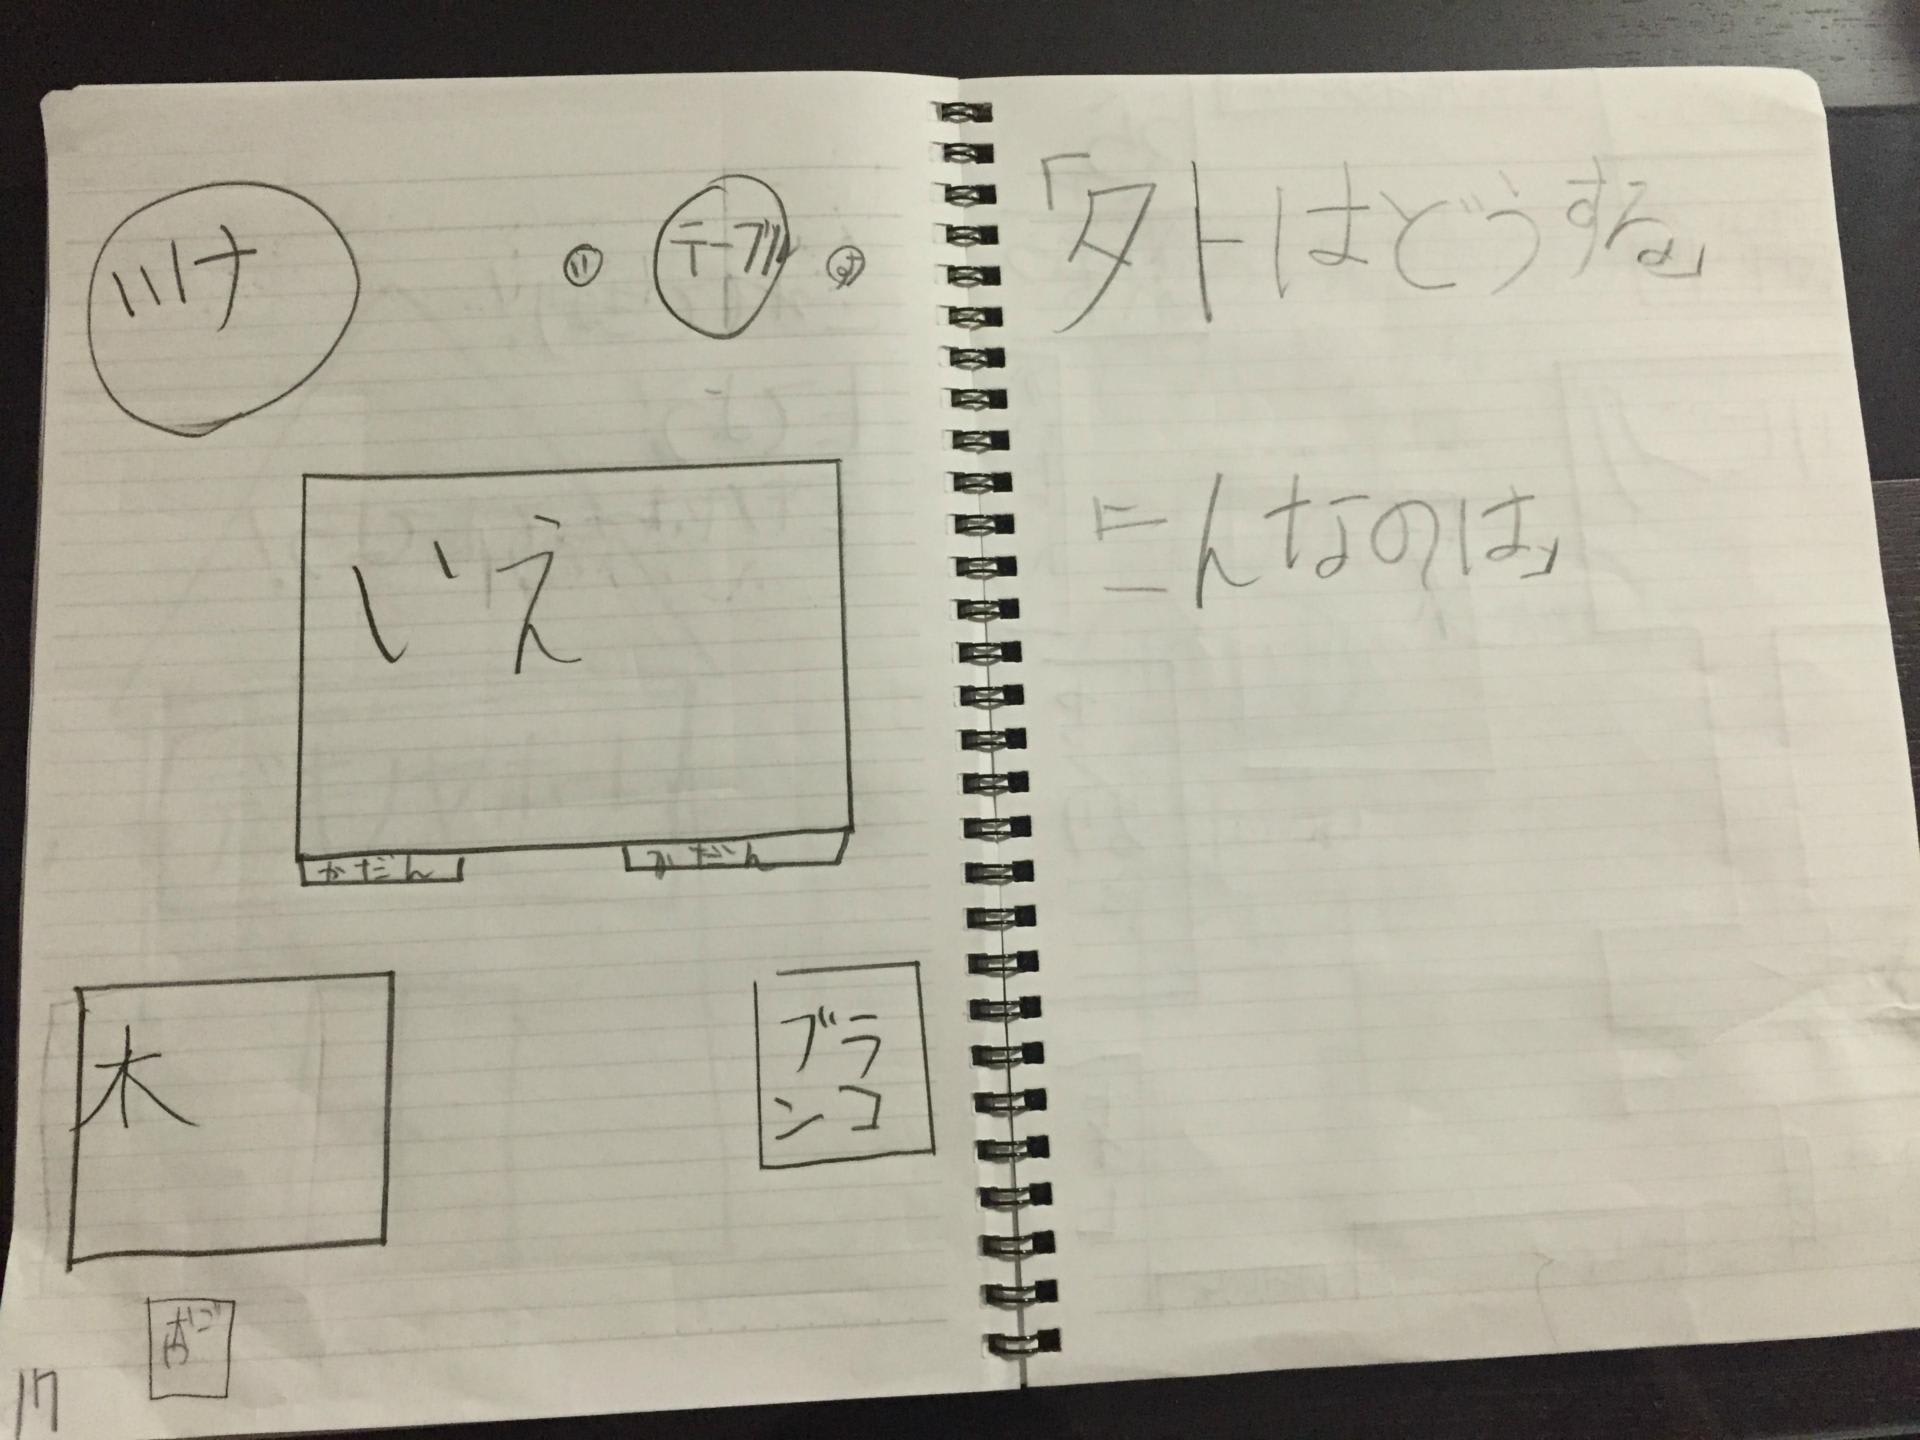 テーブル
いえ
かだん
かだん
木
ブラ
ンコ
17
「タトはどうする」
こんなのは」